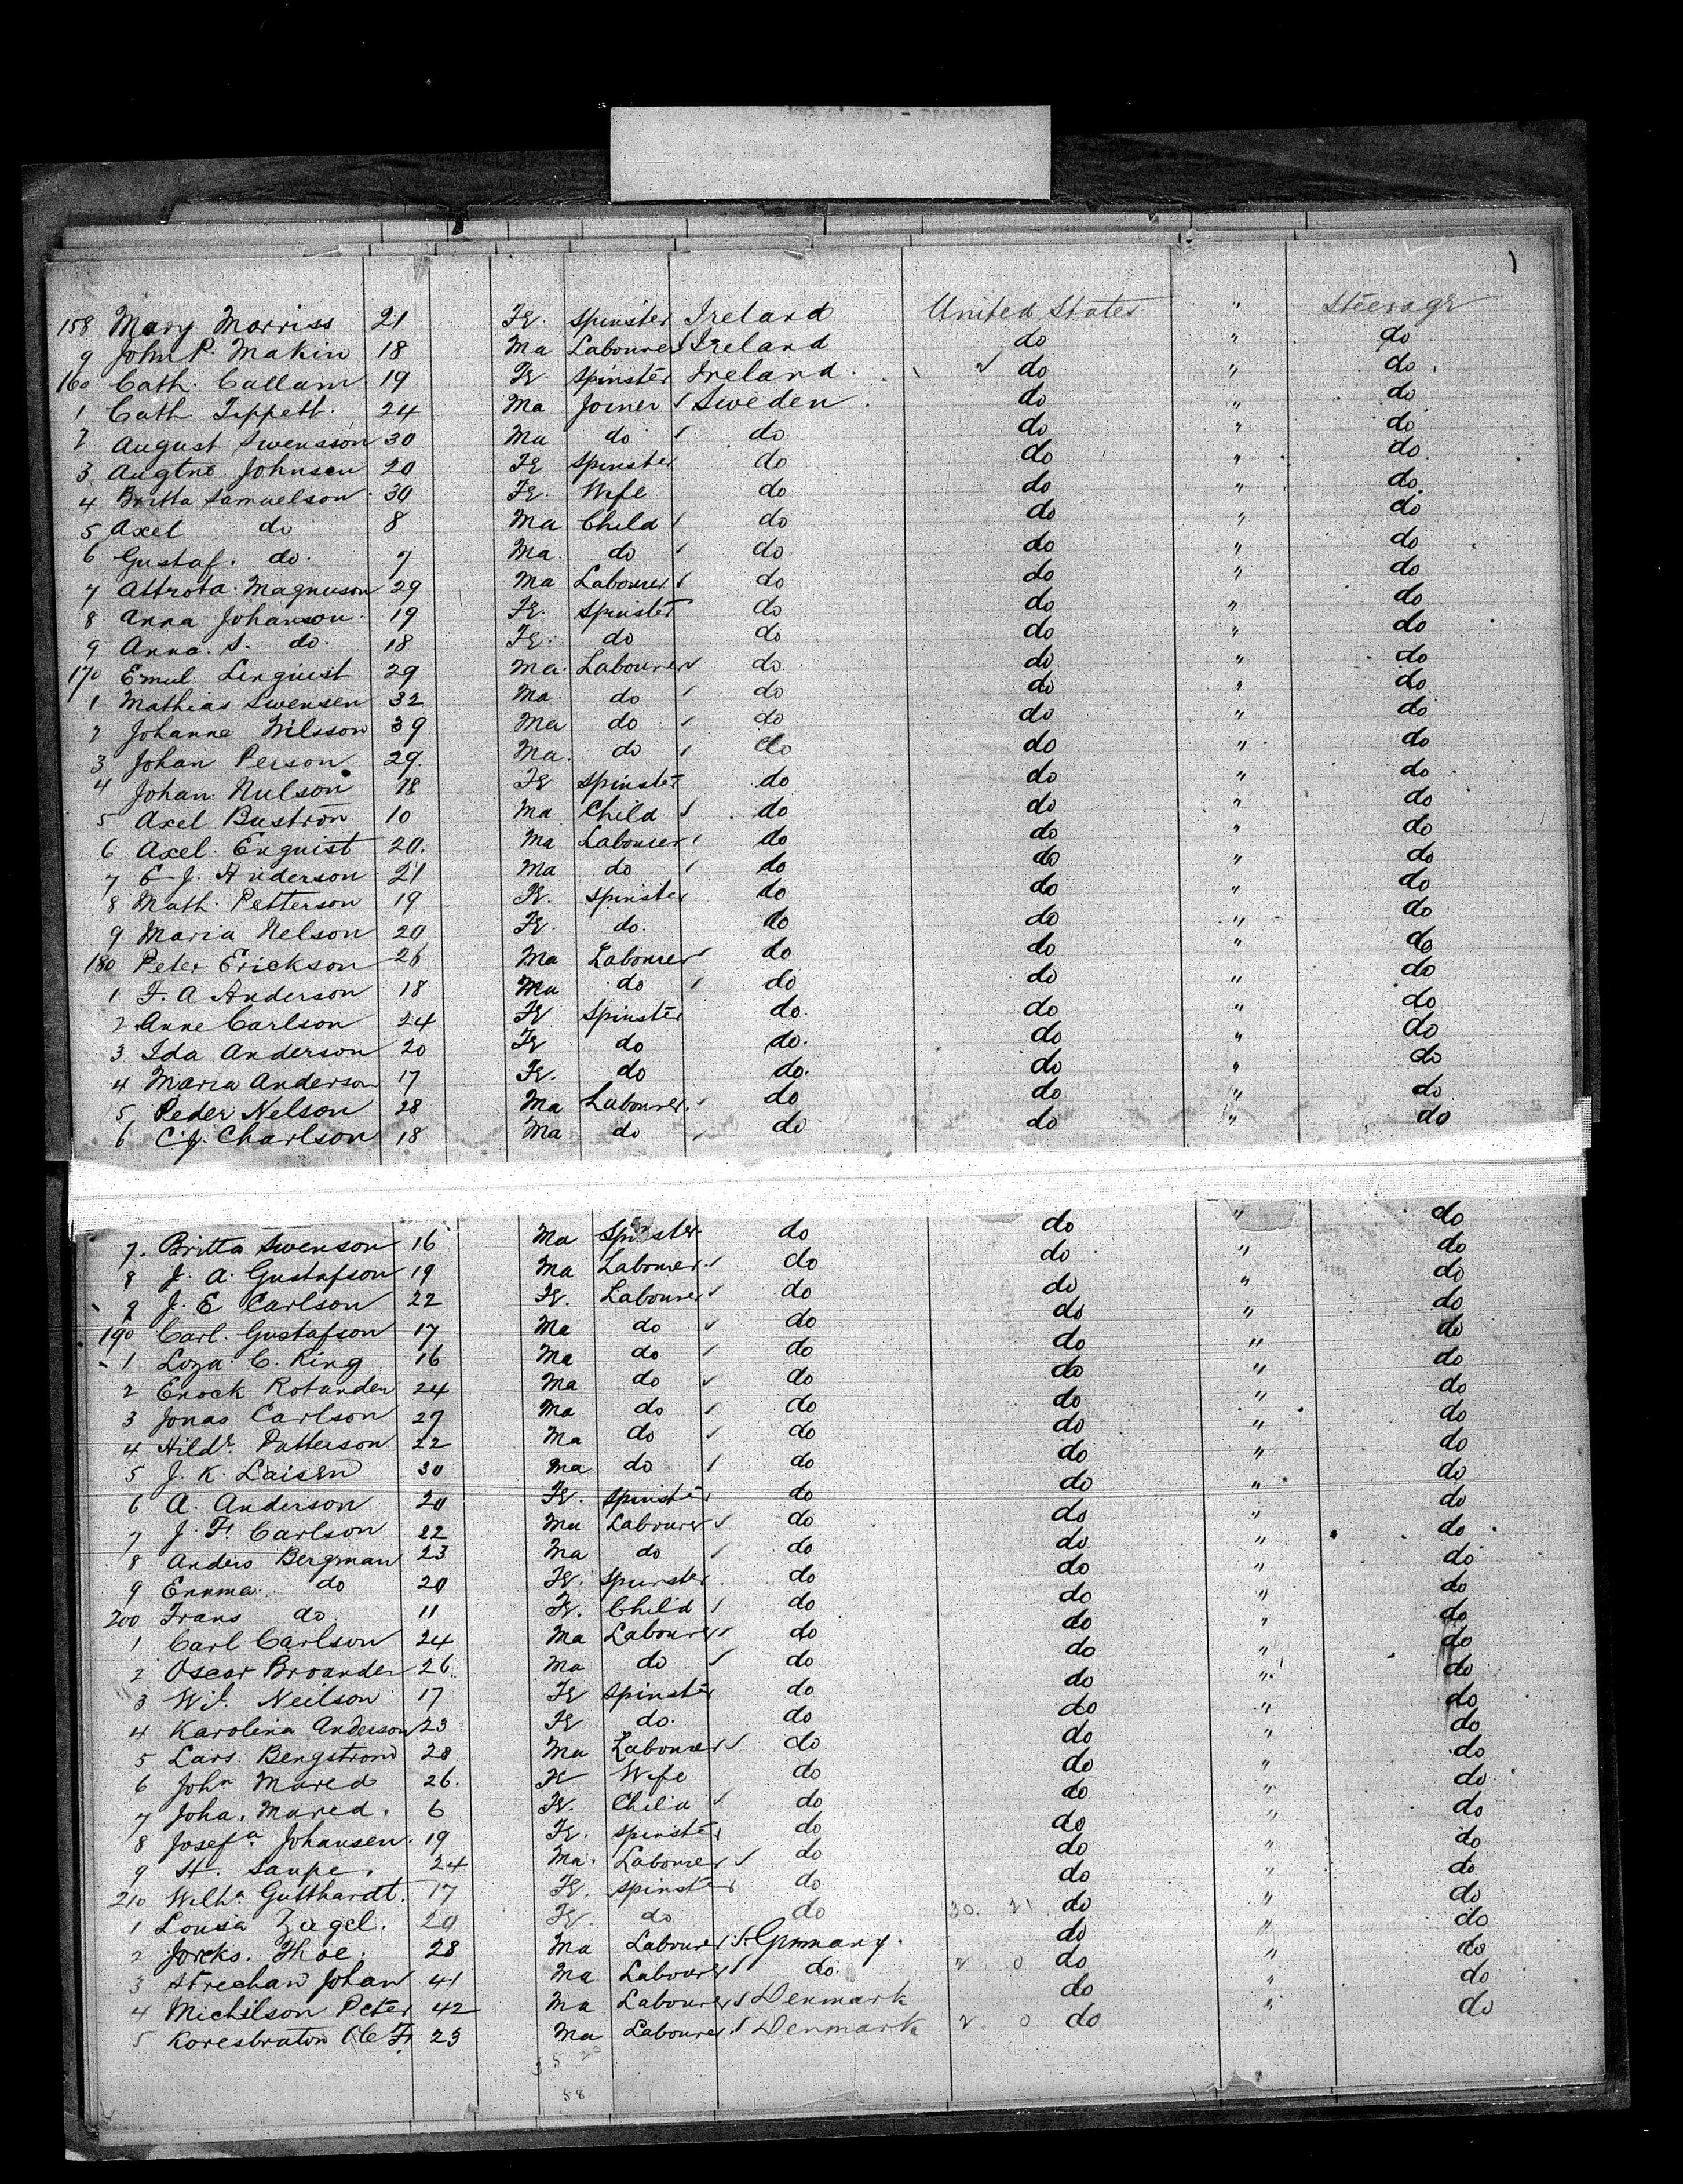 158 Mary Morriss 21 Fe. Spinster Ireland United States " Steerage
9 John P. Makin 18 Ma Labourer Ireland do " do
160 Cath. Callam 19 Fe Spinster Ireland. do " do
1 Cath Tippett. 24 Ma Joiner Sweden. do " do
2 August Swensson 30 Ma do do do " do
3 Augtne Johnsen 20 Fe Spinster do do " do
4 Britta Samuelson 30 Fe. Wife do do " do
5 Axel do 8 Ma Child do do " do
6 Gustaf. do. 7 Ma. do do do " do
7 Magnuson 29 Ma Labourer do do " do
8 Anna Johanson. 19 Fe. Spinster do do " do
9 Anna. S. do. 18 Fe. do do do " do
170 Emul Linquist 29 Ma. Labourer do. do " do
1 Mathias Swensen 32 Ma. do do do " do
2 Johanne Nilsson 39 Ma do do do " do
3 Johan Person 29. Ma. do do do " do
4 Johan Nulson 18 Fe Spinster do do " do
5 Axel Bustron 10 Ma Child do do " do
6 Axel. Enquist 20. Ma Labourer do do " do
7 E. J. Anderson 21 Ma do do do " do
8 Math. Petterson 19 Fe. Spinster do do " do
9 Maria Nelson 20 Fe. do. do do " do
180 Peter Erickson 26 Ma Labourer do do " do
1 F. A Anderson 18 Ma do do do " do
2 Anne Carlson 24 Fe Spinster do. do " do
3 Ida Anderson 20 Fe do do. do " do
4 Maria Anderson 17 Fe. do do. do " do
5 Peder Nelson 28 Ma Labourer. do do " do
6 C. J. Charlson 18 Ma do do do " do
7. Britta Swenson 16 Ma Spinster do do " do
8 J. A. Gustafson 19 Ma Labourer do do " do
9 J. E Carlson 22 Fe. Labourer do do " do
190 Carl. Gustafson 17 Ma do do do " do
1 C. King 16 Ma do do do " do
2 Enock Rotander 24 Ma do do do " do
3 Jonas Carlson 27 Ma do do do " do
4 Hildr. Patterson 22 Ma do do do " do
5 J. K. Laisen 30 Ma do do do " do
6 A. Anderson 20 Fe. Spinster do do " do
7 J. F. Carlson 22 Ma Labourer do do " do
8 Anders Bergman 23 Ma do do do " do
9 Emma. do 20 Fe. Spinster do do " do
200 Frans do 11 Fe. Child do do " do
1 Carl Carlson 24 Ma Labourer do do " do
2 Oscar Broander 26. Ma do do do " do
3 Neilson 17 Fe Spinster do do " do
4 Karolina Anderson 23 Fe do. do do " do
5 Lars. Bengstrom 28 Ma Labourer do do " do
6 John Mared 26. Fe Wife do do " do
7 Joha. Mared. 6 Fe. Child do do " do
8 Josefa Johansen. 19 Fe. Spinster do do " do
9 H. Saupe. 24 Ma. Labourer do do " do
210 Wilha Gutthardt. 17 Fe. Spinster do do " do
1 Louisa Zugel. 20 Fe. do do 30. 21 do " do
2 Thoe. 28 Ma Labourer Germany. do " do
3 Strechan Johan 41 Ma Labourer do. 2 0 do " do
4 Michilson Peter 42 Ma Labourer Denmark do " do
5 23 Ma Labourer Denmark 2. 0 do do
35 20
58